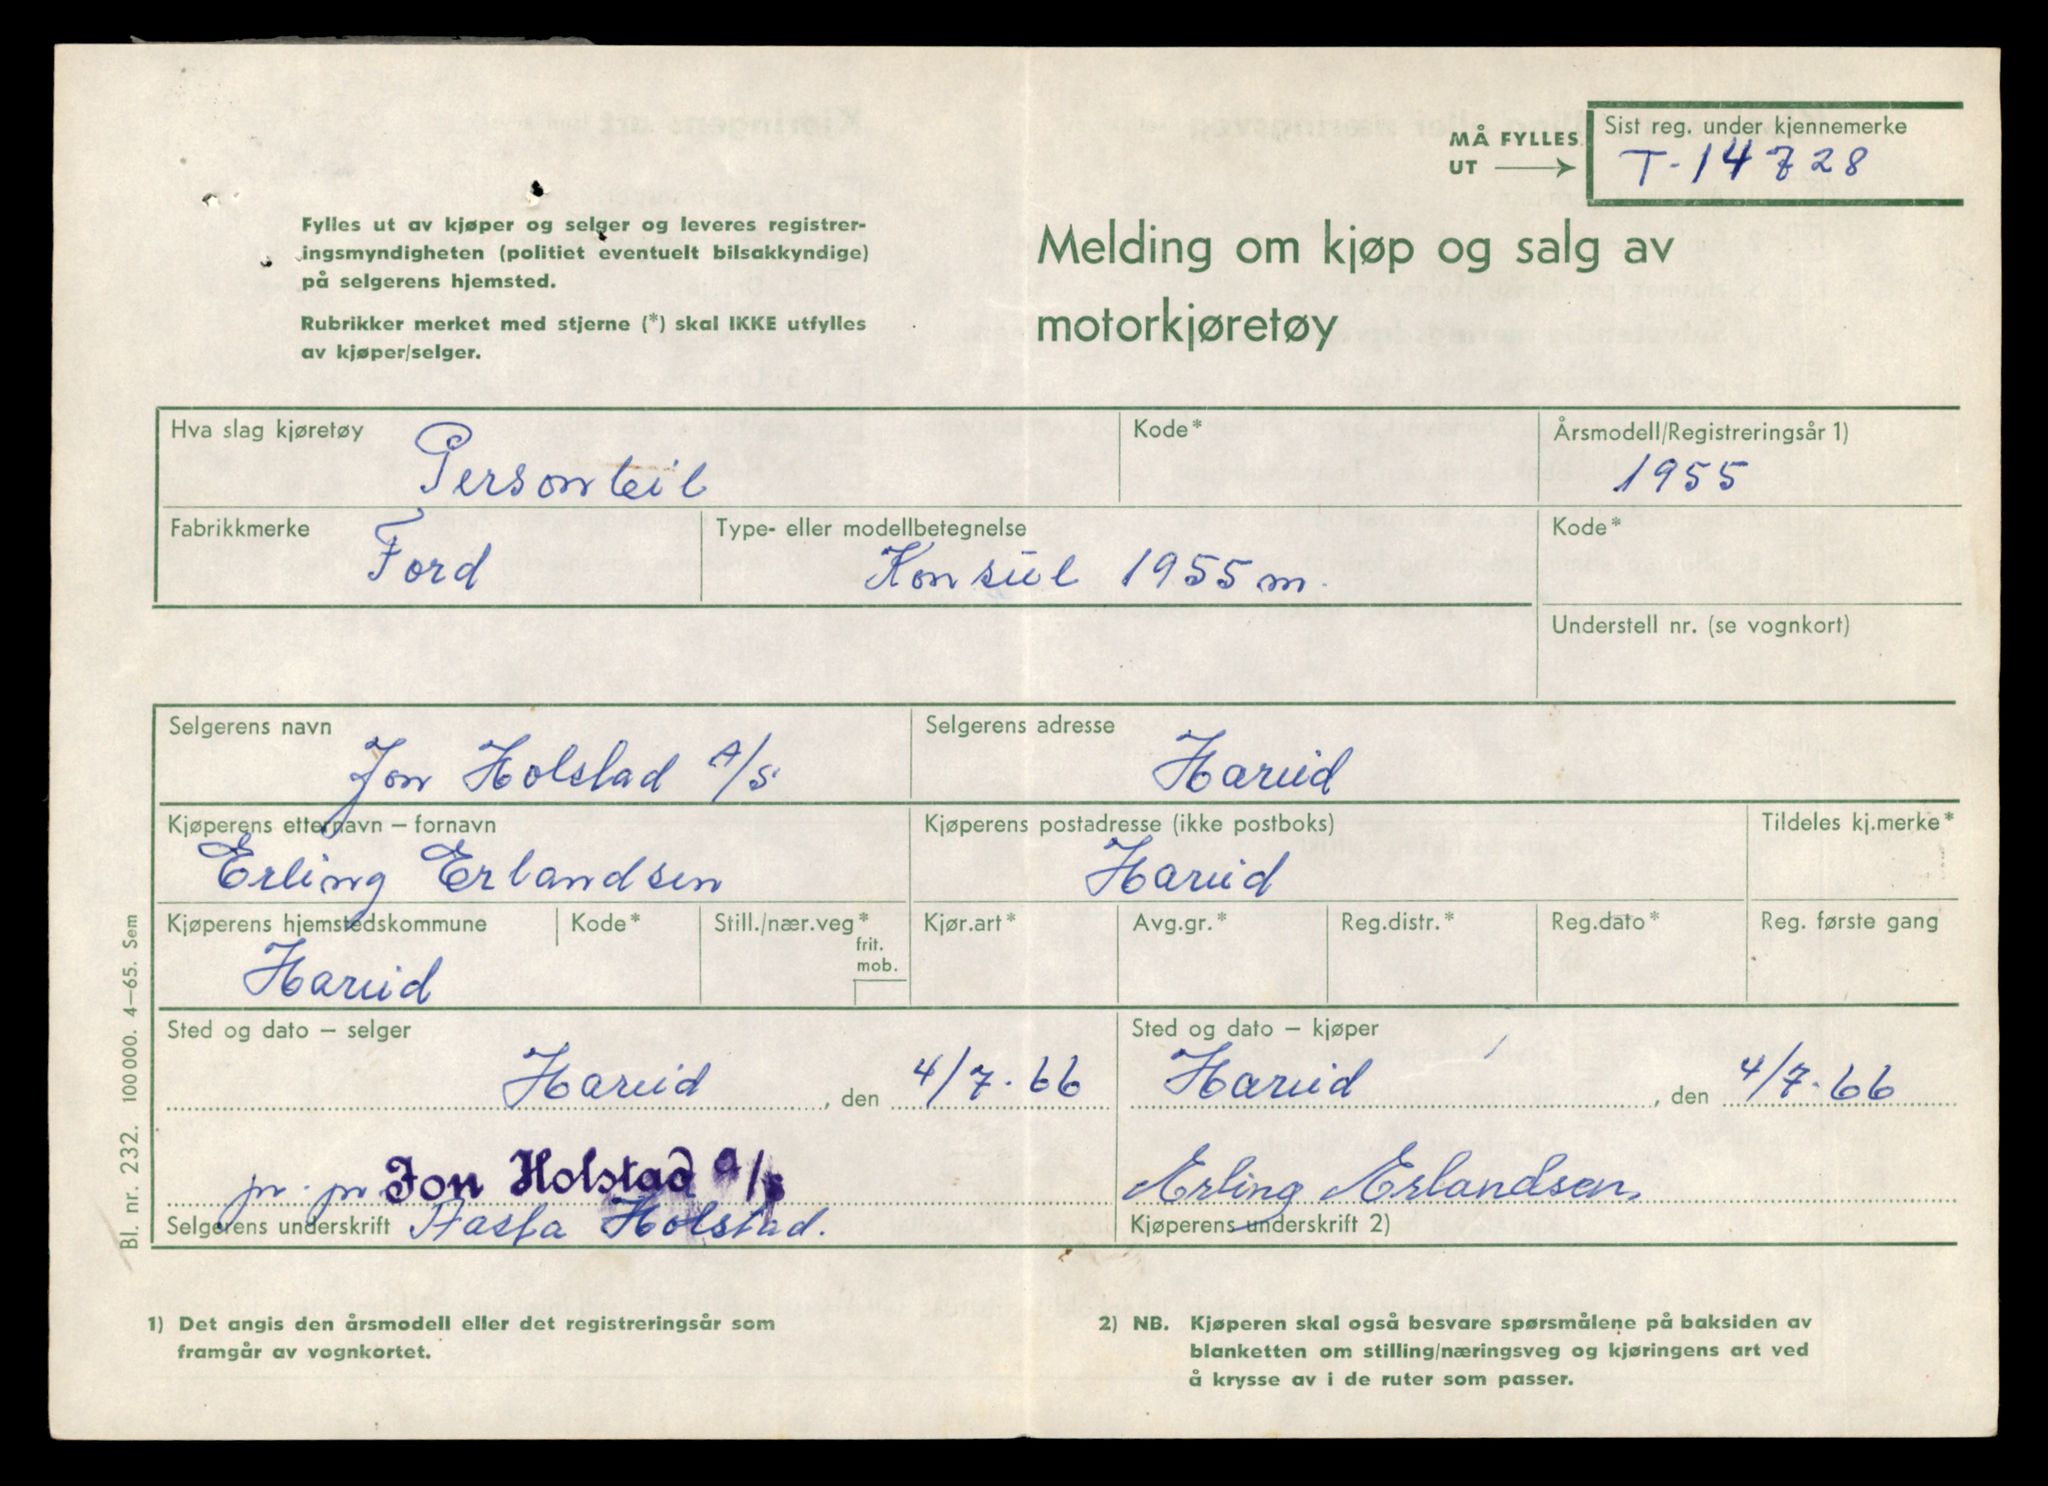 MÅ FYLLES
UT
Sist reg. under kjennemerke
T-14728
Fylles ut av kjøper og selger og leveres registrer-
ingsmyndigheten (politiet eventuelt bilsakkyndige)
på selgerens hjemsted.
Rubrikker merket med stjerne (*) skal IKKE utfylles
av kjøper/selger.
Melding om kjøp og salg av
motorkjøretøy
Hva slag kjøretøy
Personbil
Kode*
Årsmodell/Registreringsår 1)
1955
Fabrikkmerke
Ford
Type- eller modellbetegnelse
Konsul 1955 m.
Kode*
Understell nr. (se vognkort)
Selgerens navn
Jon Holstad A/S
Selgerens adresse
Hareid
Kjøperens etternavn – fornavn
Erling Erlandsen
Kjøperens postadresse (ikke postboks)
Hareid
Tildeles kj.merke*
Kjøperens hjemstedskommune
Hareid
Kode*
Still./nær.veg*
frit.
mob.
Kjør.art*
Avg.gr.*
Reg.distr.*
Reg.dato*
Reg. første gang
Sted og dato – selger
Hareid, den 4/7-66
Sted og dato – kjøper
Hareid, den 4/7-66
pr. pr. Jon Holstad a/s
Selgerens underskrift Aasta Holstad.
Erling Erlandsen
Kjøperens underskrift 2)
Bl. nr. 232. 100 000. 4–65. Sem
1) Det angis den årsmodell eller det registreringsår som
framgår av vognkortet.
2) NB. Kjøperen skal også besvare spørsmålene på baksiden av
blanketten om stilling/næringsveg og kjøringens art ved
å krysse av i de ruter som passer.